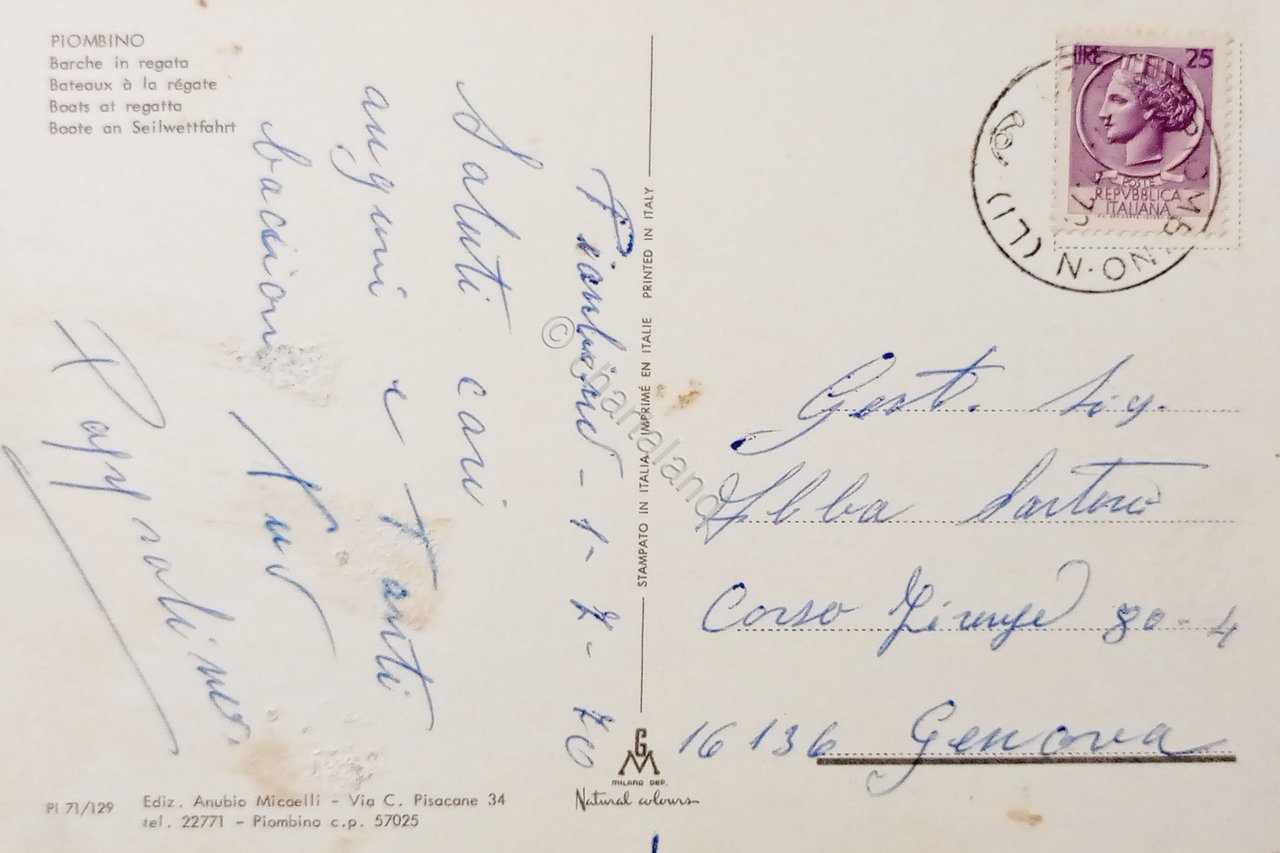 PIOMBINO
Barche in regata
Bateaux à la régate
Boats at regatta
Boote an Seilwettfahrt
Piombino - 1-7-70
Saluti cari
auguri e tanti
bacioni
Tuo
STAMPATO IN ITALIA IMPRIMÉ EN ITALIE PRINTED IN ITALY
LIRE 25
POSTE
REPVBBLICA
ITALIANA
(LI)
Gent. Sig.
Sartorio
Corso Firenze 80-4
16136 Genova
GM
MILANO DEP.
Natural colours
PI 71/129
Ediz. Anubio Micaelli - Via C. Pisacane 34
tel. 22771 - Piombino c.p. 57025
© chartaland